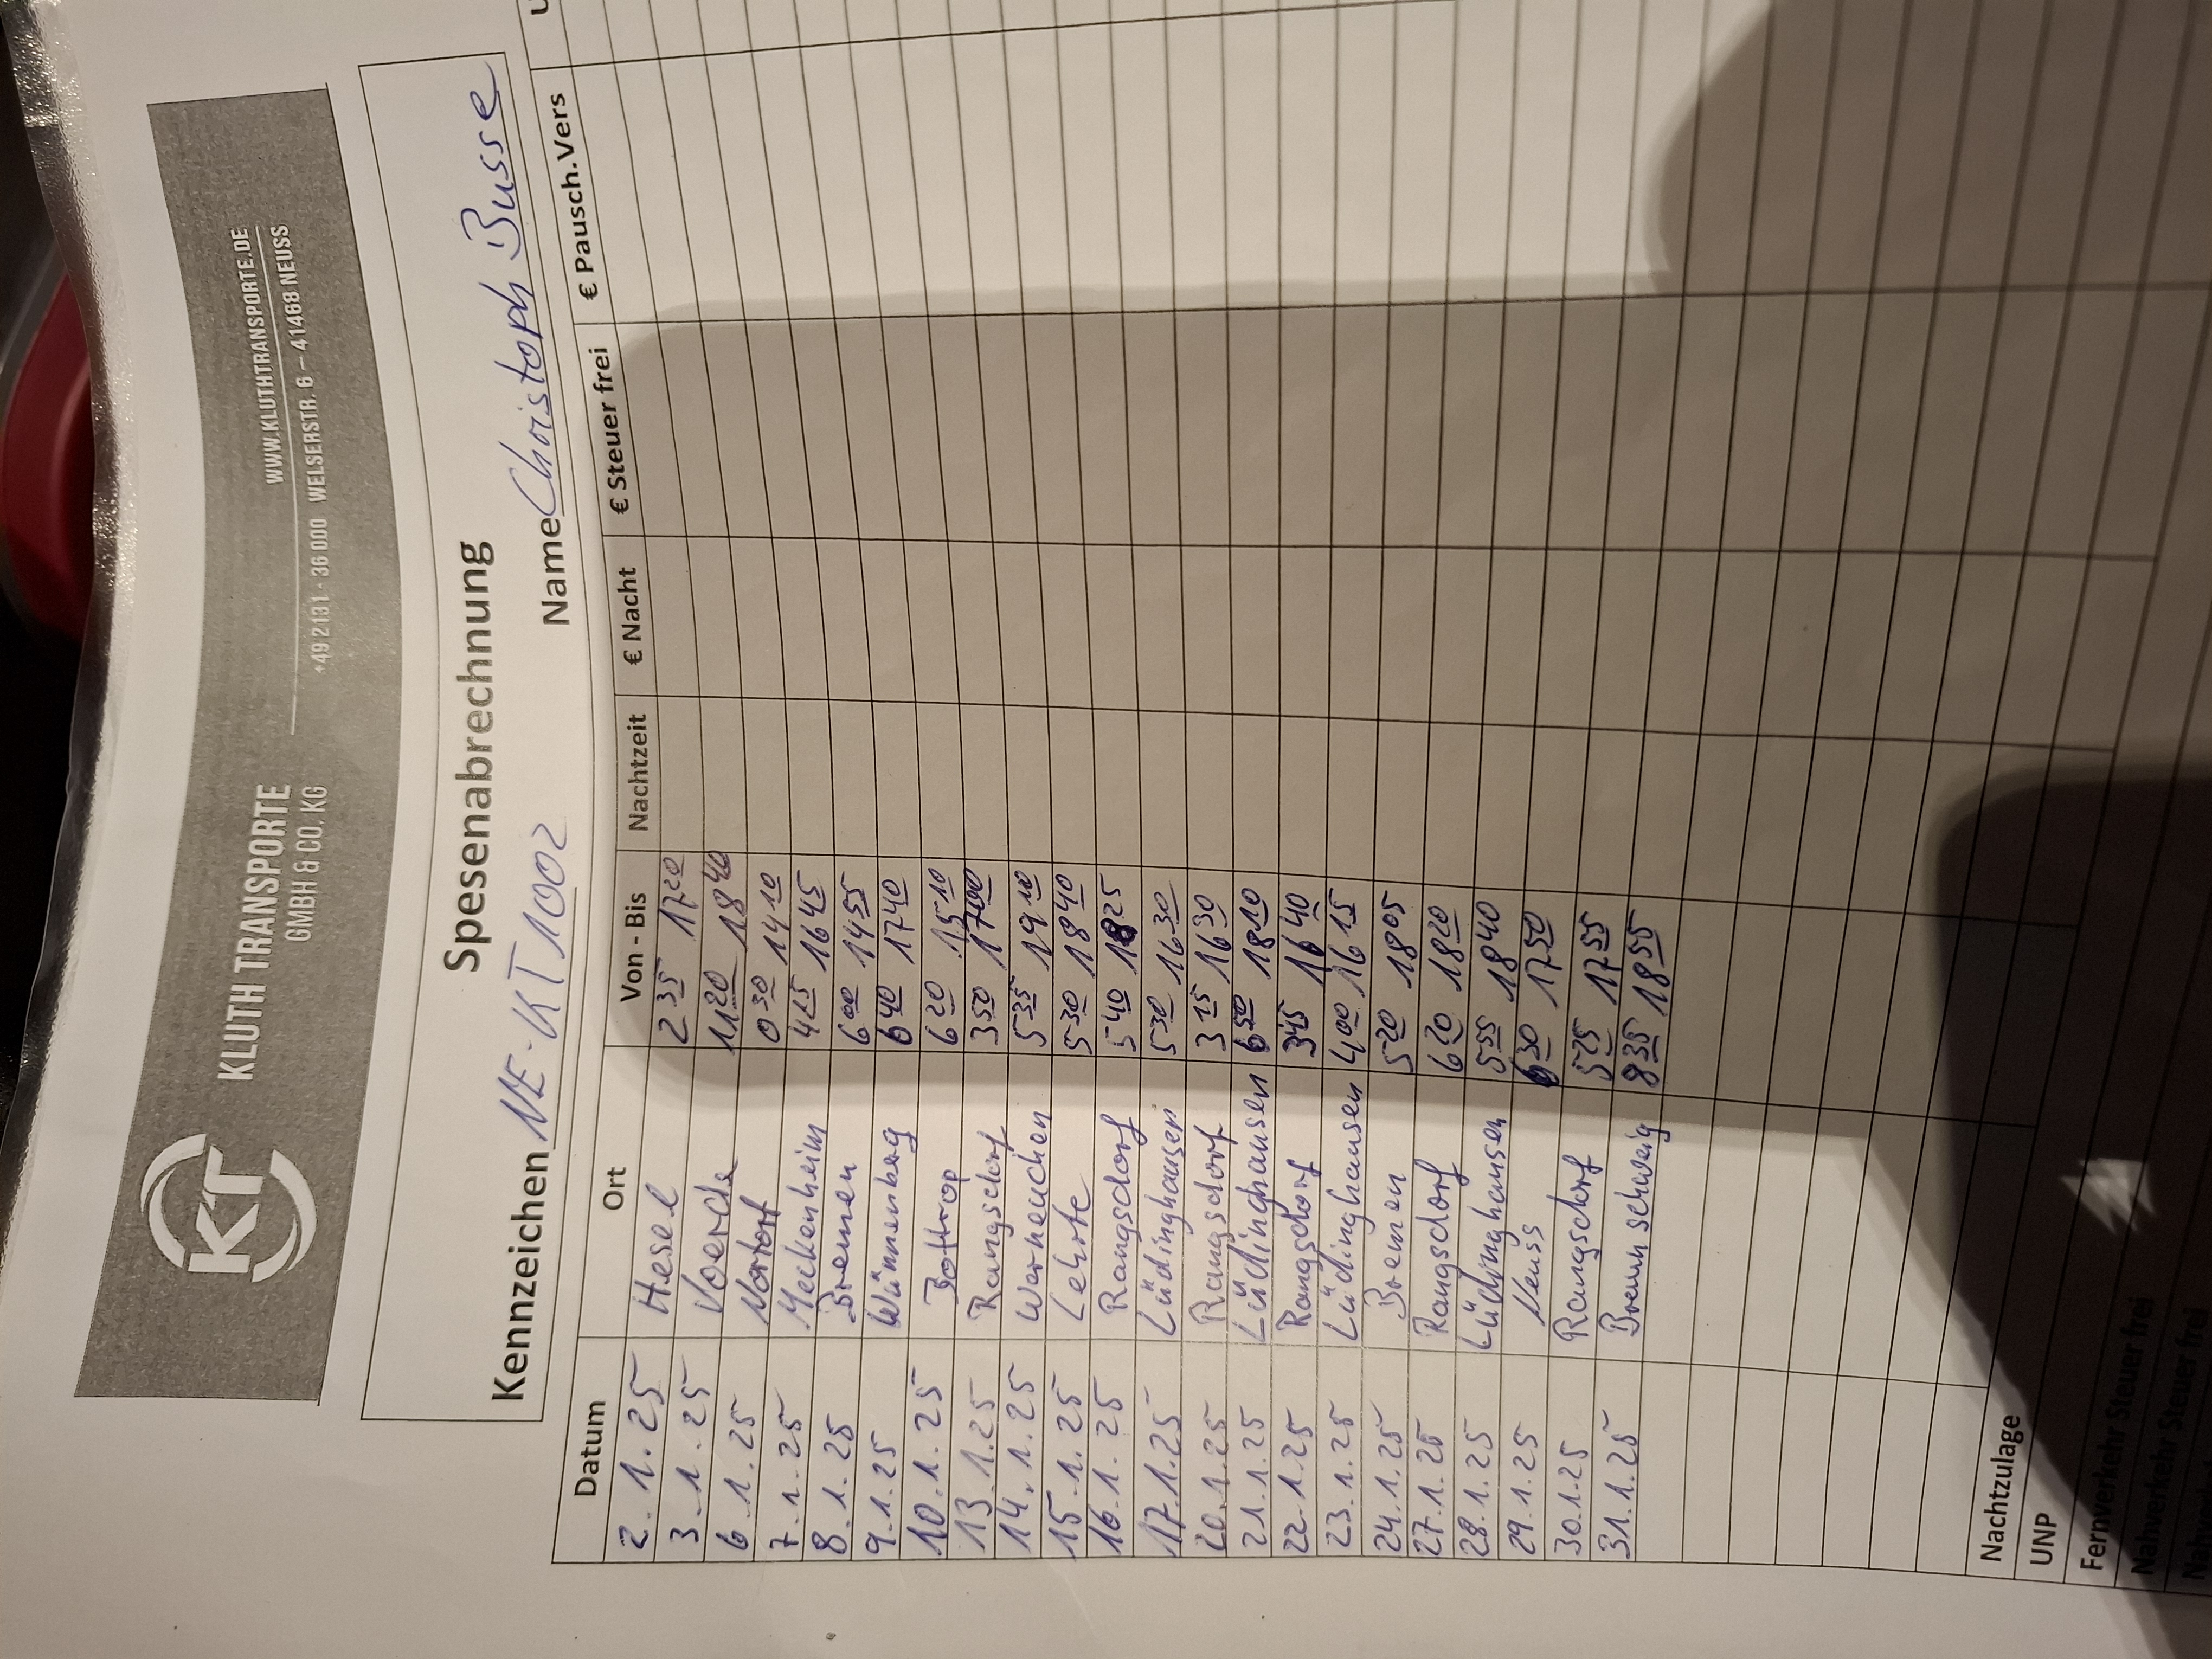 KT
KLUTH TRANSPORTE
GMBH & CO. KG
WWW.KLUTHTRANSPORTE.DE
+49 2131 - 36 000 WELSERSTR. 6 – 41468 NEUSS
Spesenabrechnung
Kennzeichen NE-KT 1002 Name Christoph Busse
Datum Ort Von - Bis Nachtzeit € Nacht € Steuer frei € Pausch.Vers
2.1.25 Hesel 2 35 17 20
3.1.25 Voerde 11 20 18 40
6.1.25 Nortorf 0 30 14 10
7.1.25 Meckenheim 4 45 16 45
8.1.25 Bremen 6 00 14 55
9.1.25 Wünnenberg 6 40 17 40
10.1.25 Bottrop 6 20 15 10
13.1.25 Rangsdorf 3 50 17 00
14.1.25 Werneuchen 5 35 19 10
15.1.25 Lehrte 5 30 18 40
16.1.25 Rangsdorf 5 40 18 25
17.1.25 Lüdinghausen 5 30 16 30
20.1.25 Rangsdorf 3 15 16 30
21.1.25 Lüdinghausen 6 50 18 10
22.1.25 Rangsdorf 3 45 16 40
23.1.25 Lüdinghausen 4 00 16 15
24.1.25 Bremen 5 20 18 05
27.1.25 Rangsdorf 6 20 18 20
28.1.25 Lüdinghausen 5 55 18 40
29.1.25 Neuss 6 30 17 50
30.1.25 Rangsdorf 5 25 17 55
31.1.25 Braunschweig 8 35 18 55
Nachtzulage
UNP
Fernverkehr Steuer frei
Nahverkehr Steuer frei